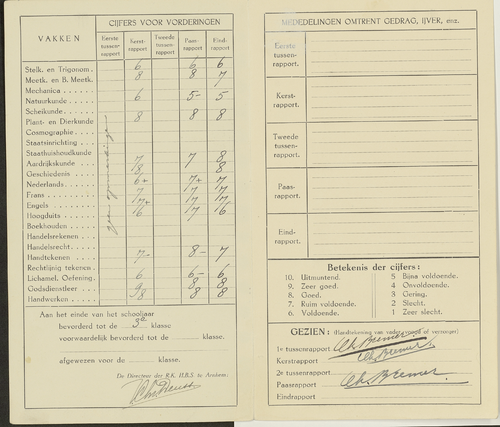 VAKKEN
CIJFERS VOOR VORDERINGEN
Eerste tussen-rapport
Kerst-rapport
Tweede tussen-rapport
Paas-rapport
Eind-rapport
Stelk. en Trigonom. 6 6 6
Meetk. en B. Meetk. 8 8 7
Mechanica
Natuurkunde 6 5- 5
Scheikunde 8 8 8
Plant- en Dierkunde
Cosmographie
Staatsinrichting
Staathuishoudkunde
Aardrijkskunde 7 7 8
Geschiedenis 8 8
Nederlands 6+ 7+ 7
Frans 7 7 7
Engels 7+ 7 7
Hoogduits 6 7 6
Boekhouden
Handelsrekenen
Handelsrecht
Handtekenen 7- 8- 7
Rechtlijnig tekenen
Lichamel. Oefening 6 6- 6
Godsdienstleer 9 8 8
Handwerken 8 8 8
Aan het einde van het schooljaar
bevorderd tot de 3e klasse
voorwaardelijk bevorderd tot de klasse.
afgewezen voor de klasse.
De Directeur der R.K. H.B.S. te Arnhem:
MEDEDELINGEN OMTRENT GEDRAG, IJVER, enz.
Eerste tussen-rapport.
Kerst-rapport.
Tweede tussen-rapport.
Paas-rapport.
Eind-rapport.
Betekenis der cijfers:
10. Uitmuntend. 5 Bijna voldoende.
9. Zeer goed. 4 Onvoldoende.
8. Goed. 3 Gering.
7. Ruim voldoende. 2 Slecht.
6. Voldoende. 1 Zeer slecht.
GEZIEN: (Handtekening van vader, voogd of verzorger)
1e tussenrapport Ch. Bremer
Kerstrapport Ch. Bremer
2e tussenrapport
Paasrapport Ch. Bremer
Eindrapport